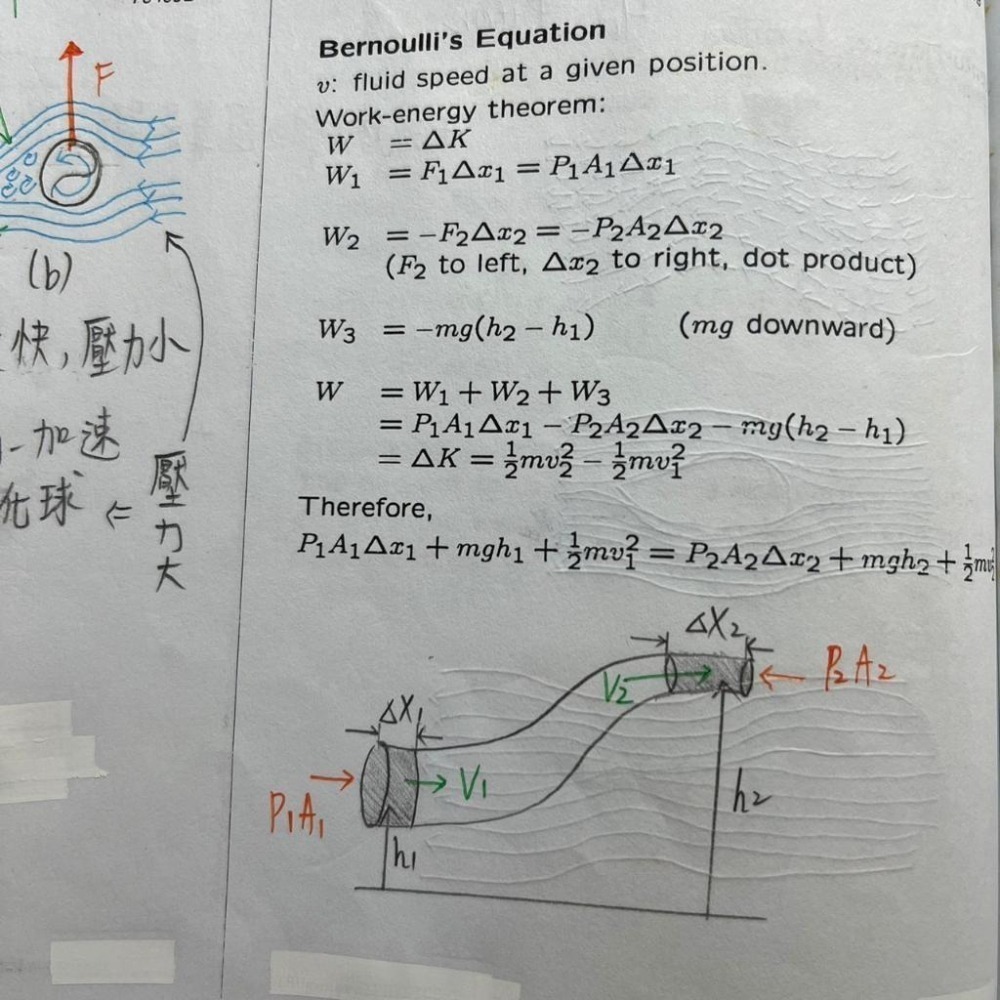 F
(b)
快，壓力小
加速
球 ⇐ 壓力大
Bernoulli's Equation
v: fluid speed at a given position.
Work-energy theorem:
W = ΔK
W₁ = F₁Δx₁ = P₁A₁Δx₁
W₂ = −F₂Δx₂ = −P₂A₂Δx₂
(F₂ to left, Δx₂ to right, dot product)
W₃ = −mg(h₂ − h₁) (mg downward)
W = W₁ + W₂ + W₃
= P₁A₁Δx₁ − P₂A₂Δx₂ − mg(h₂ − h₁)
= ΔK = ½mv₂² − ½mv₁²
Therefore,
P₁A₁Δx₁ + mgh₁ + ½mv₁² = P₂A₂Δx₂ + mgh₂ + ½mv₂²
ΔX₂
V₂ P₂A₂
ΔX₁
P₁A₁ V₁
h₂
h₁